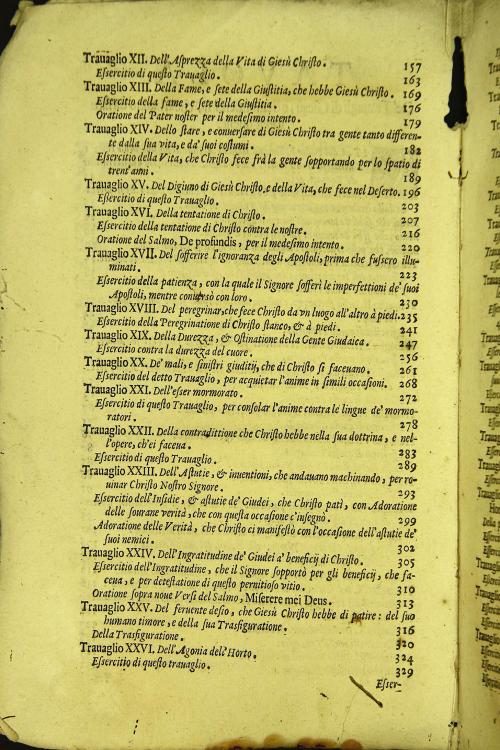 Trauaglio XII. Dell'Asprezza della Vita di Giesù Christo. 157
Essercitio di questo Trauaglio. 163
Trauaglio XIII. Della Fame, e sete della Giustitia, che hebbe Giesù Christo. 169
Essercitio della fame, e sete della Giustitia. 176
Oratione del Pater noster per il medesimo intento. 179
Trauaglio XIV. Dello stare, e conuersare di Giesù Christo tra gente tanto differen-
te dalla sua vita, e da' suoi costumi. 182
Essercitio della Vita, che Christo fece frà la gente sopportando per lo spatio di
trent'anni. 189
Trauaglio XV. Del Digiuno di Giesù Christo, e della Vita, che fece nel Deserto. 196
Essercitio di questo Trauaglio. 203
Trauaglio XVI. Della tentatione di Christo. 207
Essercitio della tentatione di Christo contra le nostre. 216
Oratione del Salmo, De profundis, per il medesimo intento. 220
Trauaglio XVII. Del sofferire l'ignoranza degli Apostoli, prima che fussero illu-
minati. 223
Essercitio della patienza, con la quale il Signore sofferì le imperfettioni de' suoi
Apostoli, mentre conuersò con loro. 230
Trauaglio XVIII. Del peregrinar, che fece Christo da vn luogo all'altro à piedi. 235
Essercitio della Peregrinatione di Christo stanco, & à piedi. 241
Trauaglio XIX. Della Durezza, & Ostinatione della Gente Giudaica. 247
Essercitio contra la durezza del cuore. 256
Trauaglio XX. De' mali, e sinistri giuditij, che di Christo si faceuano. 261
Essercitio del detto Trauaglio, per acquietar l'anime in simili occasioni. 268
Trauaglio XXI. Dell'esser mormorato. 272
Essercitio di questo Trauaglio, per consolar l'anime contra le lingue de' mormo-
ratori. 278
Trauaglio XXII. Della contradittione che Christo hebbe nella sua dottrina, e nel-
l'opere, ch'ei faceua. 283
Essercitio di questo Trauaglio. 289
Trauaglio XXIII. Dell'Astutie, & inuentioni, che andauano machinando, per ro-
uinar Christo Nostro Signore. 293
Essercitio dell'Insidie, & astutie de' Giudei, che Christo patì, con Adoratione
delle sourane verità, che con questa occasione c'insegnò. 299
Adoratione delle Verità, che Christo ci manifestò con l'occasione dell'astutie de'
suoi nemici. 302
Trauaglio XXIV. Dell'Ingratitudine de' Giudei a' beneficij di Christo. 305
Essercitio dell'Ingratitudine, che il Signore sopportò per gli beneficij, che fa-
ceua, e per detestatione di questo pernitioso vitio. 310
Oratione sopra noue Versi del Salmo, Miserere mei Deus. 313
Trauaglio XXV. Del feruente desio, che Giesù Christo hebbe di patire: del suo
humano timore, e della sua Trasfiguratione. 316
Della Trasfiguratione. 320
Trauaglio XXVI. Dell'Agonia dell'Horto. 324
Essercitio di questo trauaglio. 329
Esser-